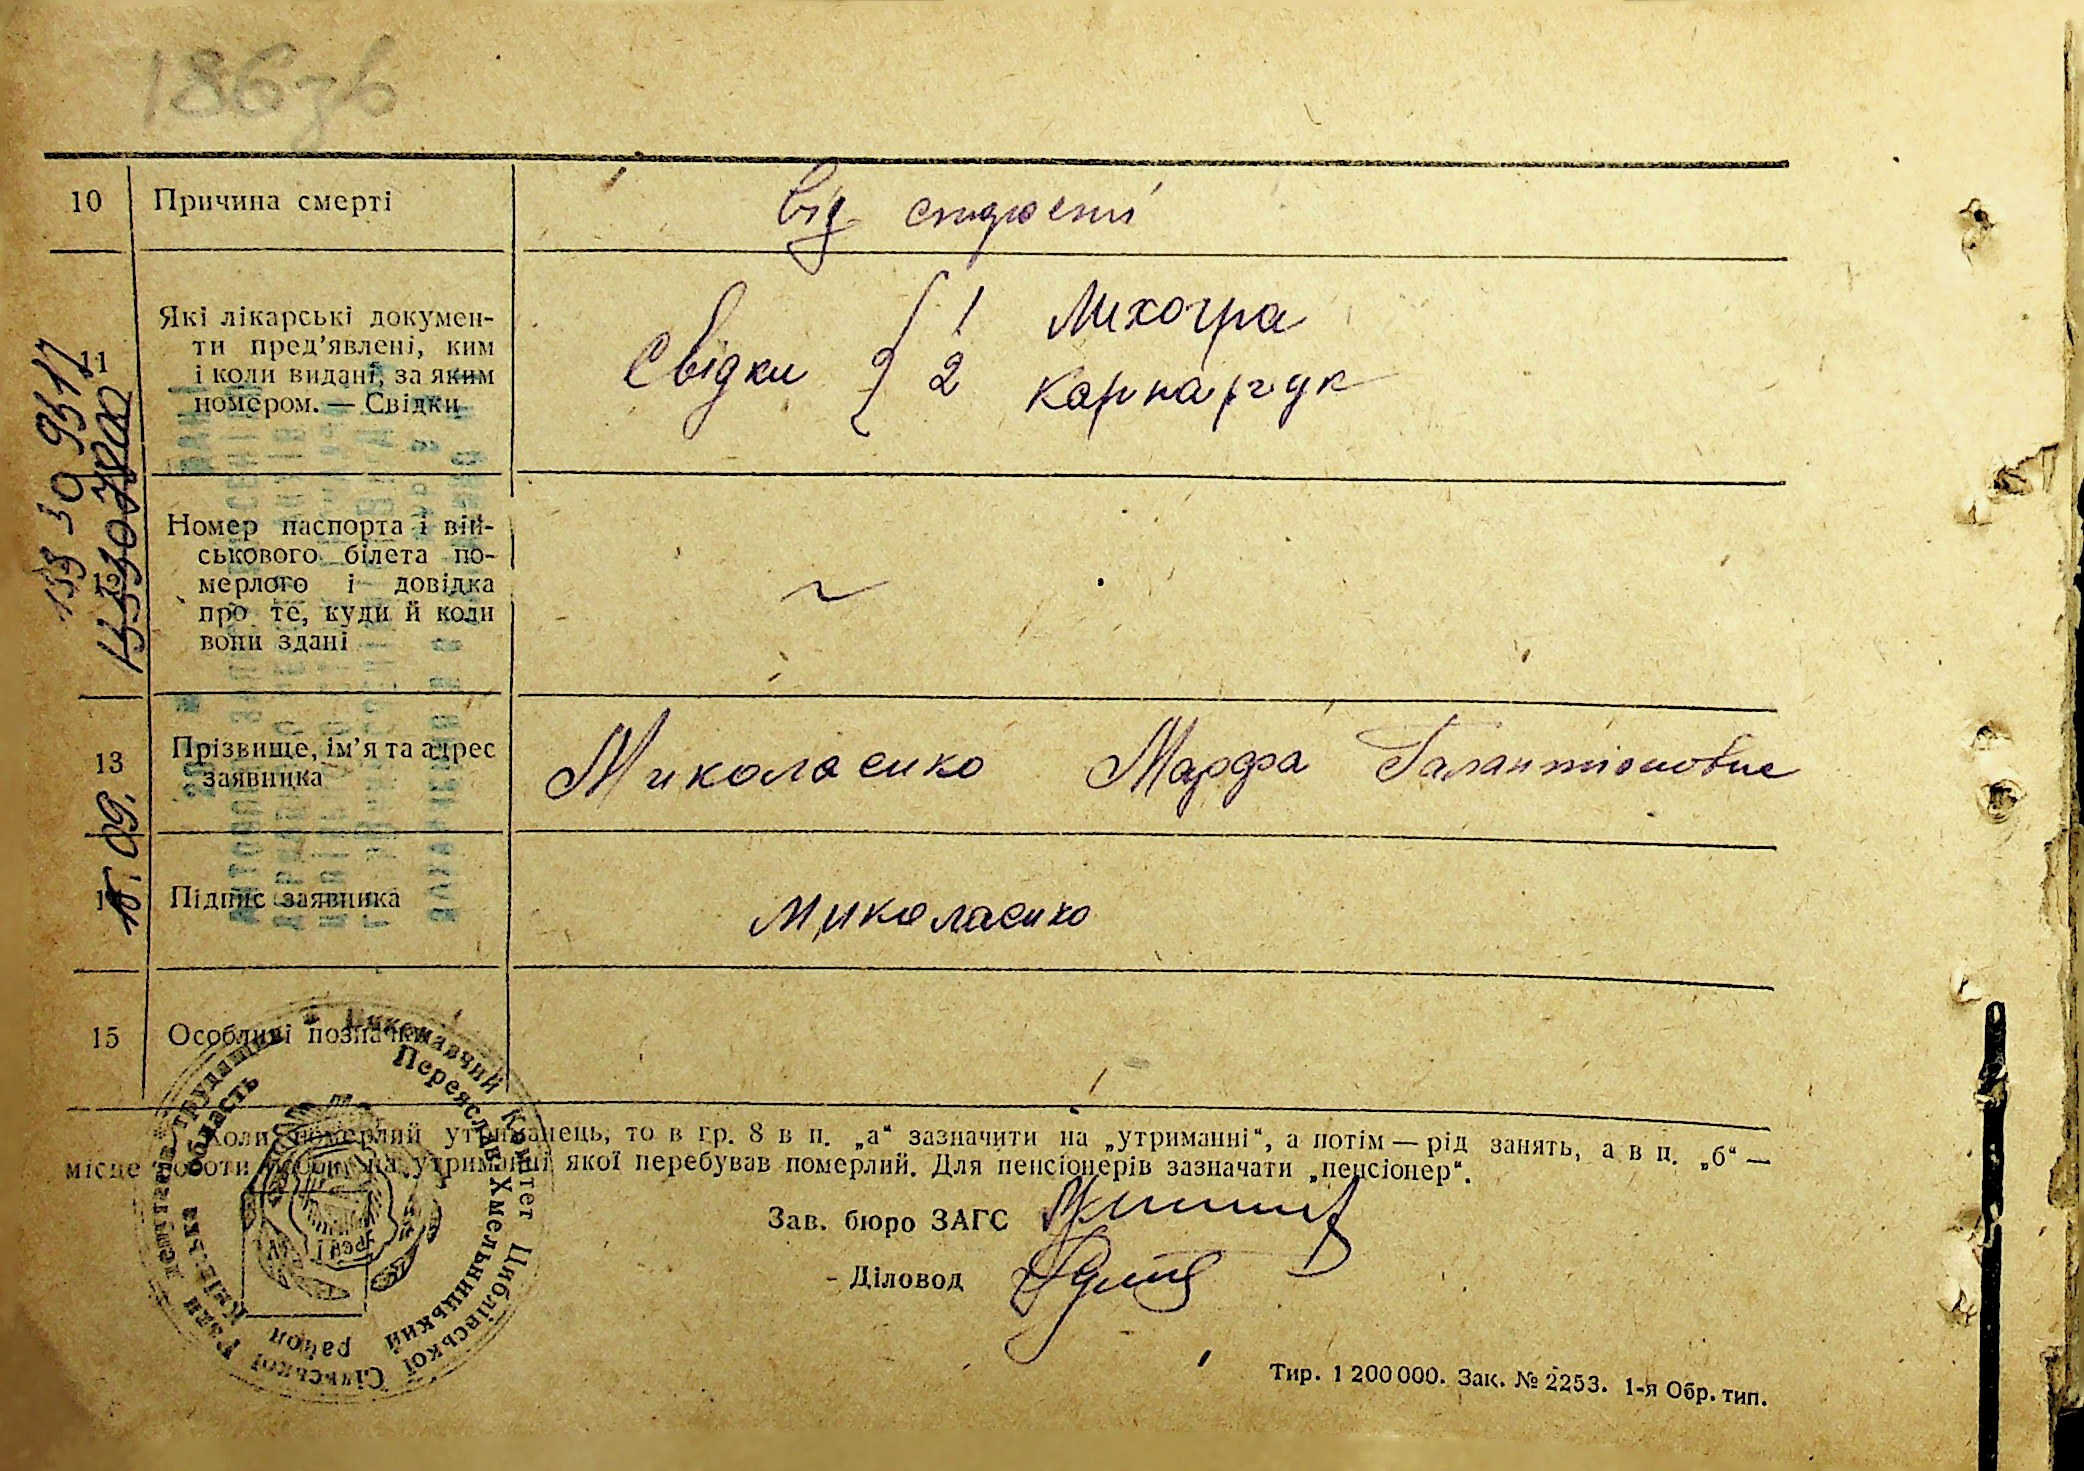 186зв
10 Причина смерті
від старості
11 Які лікарські докумен-
ти пред'явлені, ким
і коли видані, за яким
номером. — Свідки
Свідки { 1 Лихогра
2 Карнарчук
Номер паспорта і вій-
ськового білета по-
мерлого і довідка
про те, куди й коли
вони здані
13 Прізвище, ім'я та адрес
заявника
Миколаенко Марфа Галактіоновна
Підпис заявника
Миколаенко
15 Особливі позначки
Коли померлий утриманець, то в гр. 8 в п. „а“ зазначити на „утриманні“, а потім — рід занять, а в п. „б“ —
місце роботи особи, на утриманні якої перебував померлий. Для пенсіонерів зазначати „пенсіонер“.
Зав. бюро ЗАГС
Діловод
Тир. 1 200 000. Зак. № 2253. 1-я Обр. тип.
Виконавчий Комітет Циблівської Сільської Ради депутатів трудящих
Переяслав-Хмельницький район Київська область